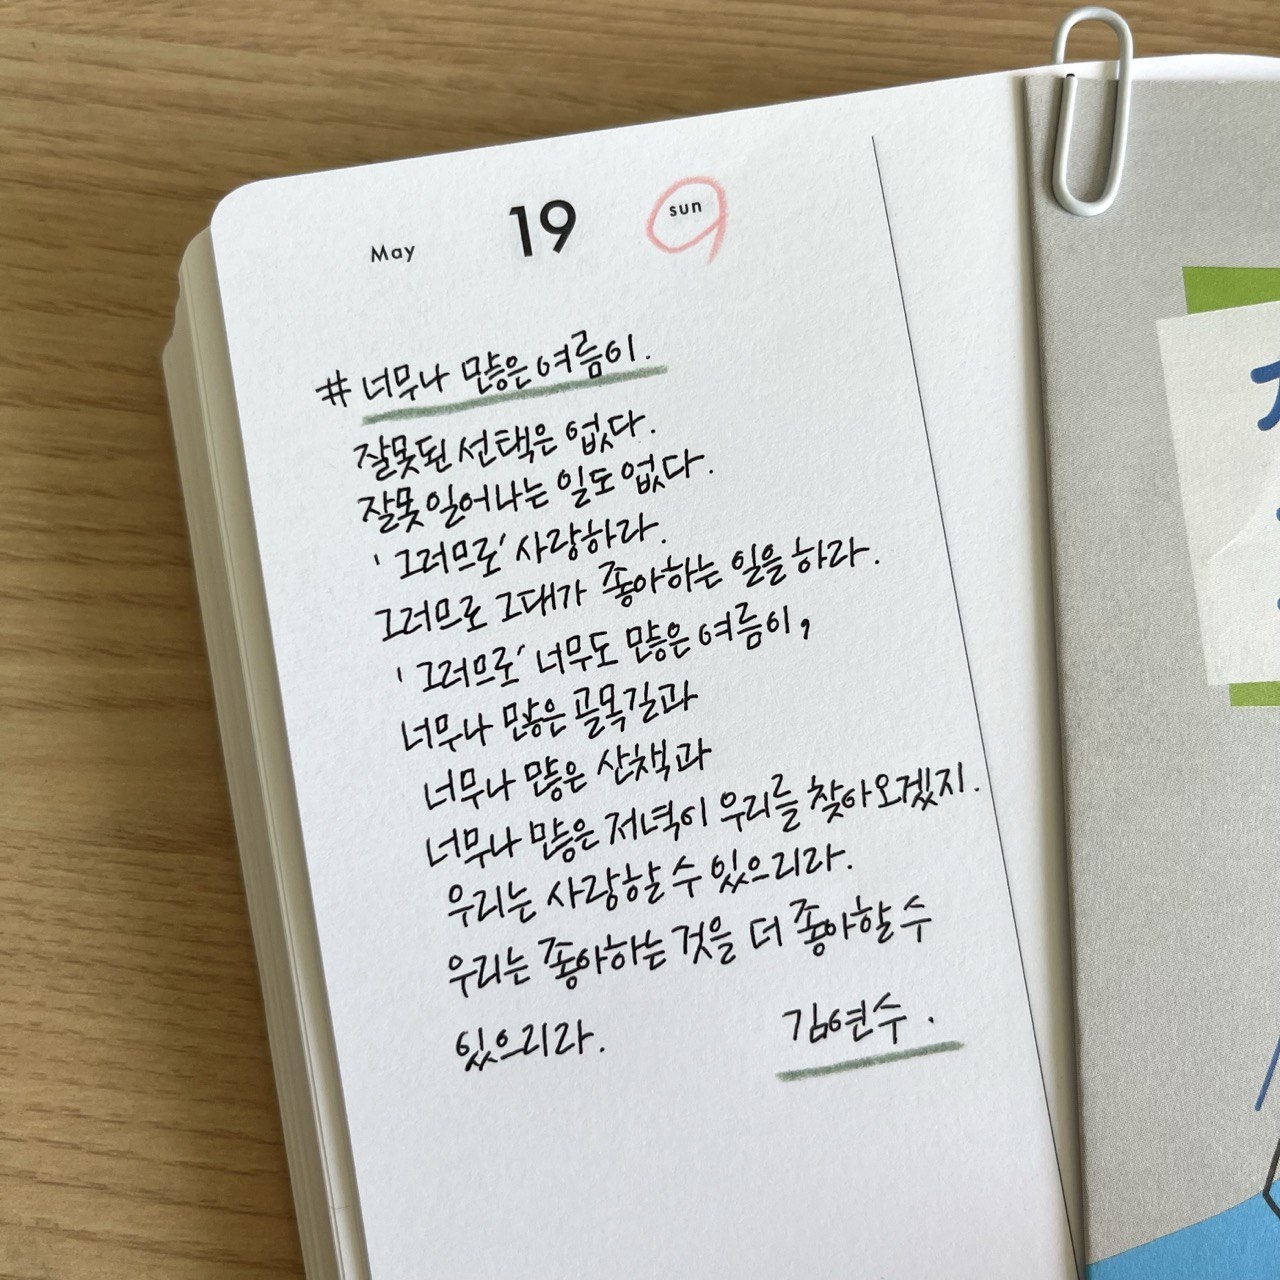 May 19 sun
# 너무나 많은 여름이.
잘못된 선택은 없다.
잘못 일어나는 일도 없다.
'그러므로' 사랑하라.
그러므로 그대가 좋아하는 일을 하라.
'그러므로' 너무도 많은 여름이,
너무나 많은 골목길과
너무나 많은 산책과
너무나 많은 저녁이 우리를 찾아오겠지.
우리는 사랑할 수 있으리라.
우리는 좋아하는 것을 더 좋아할 수
있으리라. 김연수.